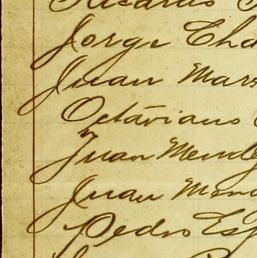 Ricardo
Jorge Cha
Juan Mars
Octaviano
Juan Mend
Juan Mend
Pedro Esp